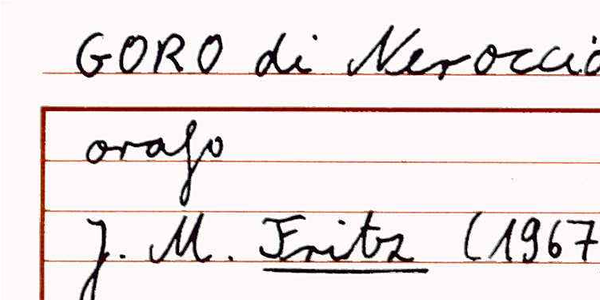 GORO di Neroccio
orafo
J. M. Fritz (1967